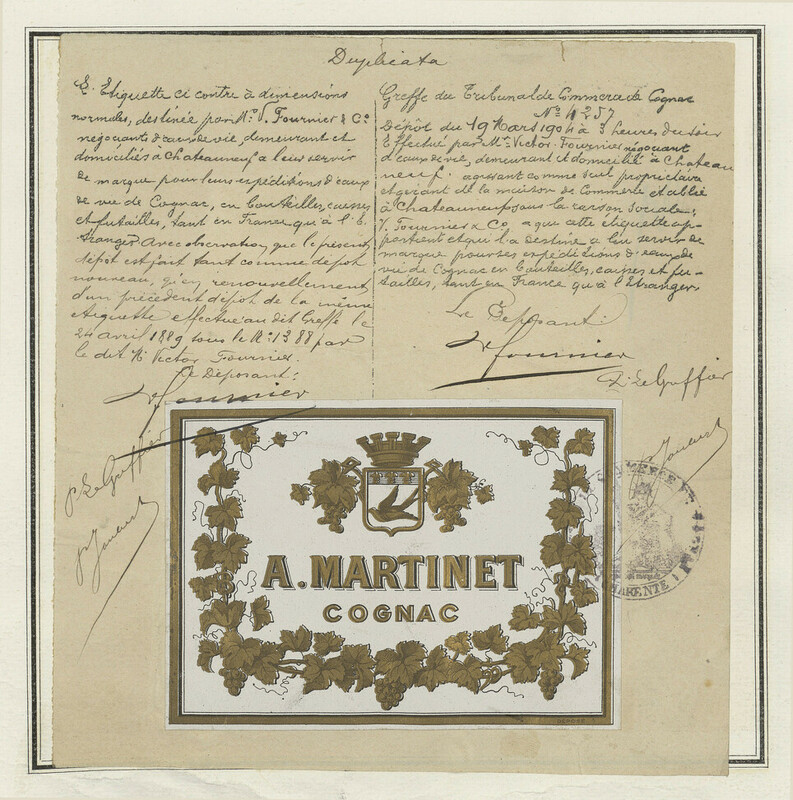 Duplicata
E. Etiquette ci contre à dimensions
normales, destinée par Mr. V. Fournier & Co
négociants d'eaux de vie, demeurant et
domiciliés à Chateauneuf a leur servir
de marque pour leurs expéditions d'eaux
de vie de Cognac, en bouteilles, caisses
et futailles, tant en France qu'à l'E-
tranger. Avec observation que le présent
dépôt est fait tant comme dépôt
nouveau, qu'en renouvellement
d'un précédent dépôt de la même
étiquette effectué au dit Greffe le
24 avril 1889 sous le No. 1388 par
le dit Mr Victor Fournier.
Le Déposant:
V Fournier
P. Le Greffier
Greffe du Tribunal de Commerce de Cognac
No 4257
Dépôt du 19 Mars 1904 à 3 heures du soir
Effectué par Mr. Victor Fournier négociant
d'eaux de vie, demeurant et domicilié à Chateau
neuf. agissant comme seul propriétaire
et gérant de la maison de Commerce établie
à Chateauneuf sous la raison sociale:
V. Fournier & Co - que cette étiquette ap-
partient et qu'il a destine a lui servir de
marque pour ses expéditions d'eaux de
vie de Cognac en bouteilles, caisses et fu-
tailles, tant en France qu'à l'Etranger
Le Déposant:
V Fournier
P. Le Greffier
A. MARTINET
COGNAC
COMMERCE ET
CHARENTE